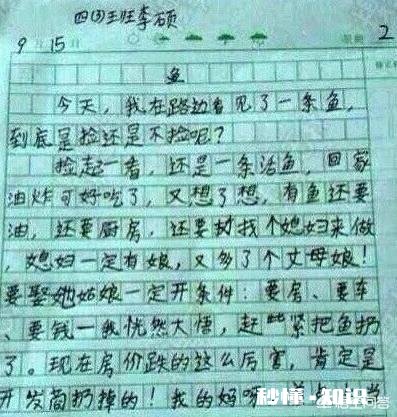 四(3)班李硕
9月15日 星期 2
鱼
今天，我在路边看见了一条鱼，
到底是捡还是不捡呢？
捡起一看，还是一条活鱼，回家
油炸可好吃了，又想了想，有鱼还要
油，还要厨房，还要找个媳妇来做
，媳妇一定有娘，又多了个丈母娘！
要娶她姑娘一定开条件：要房、要车
、要钱一我恍然大悟，赶紧把鱼扔
了。现在房价跌的这么厉害，肯定是
开发商扔掉的！我的妈呀
秒懂·知识